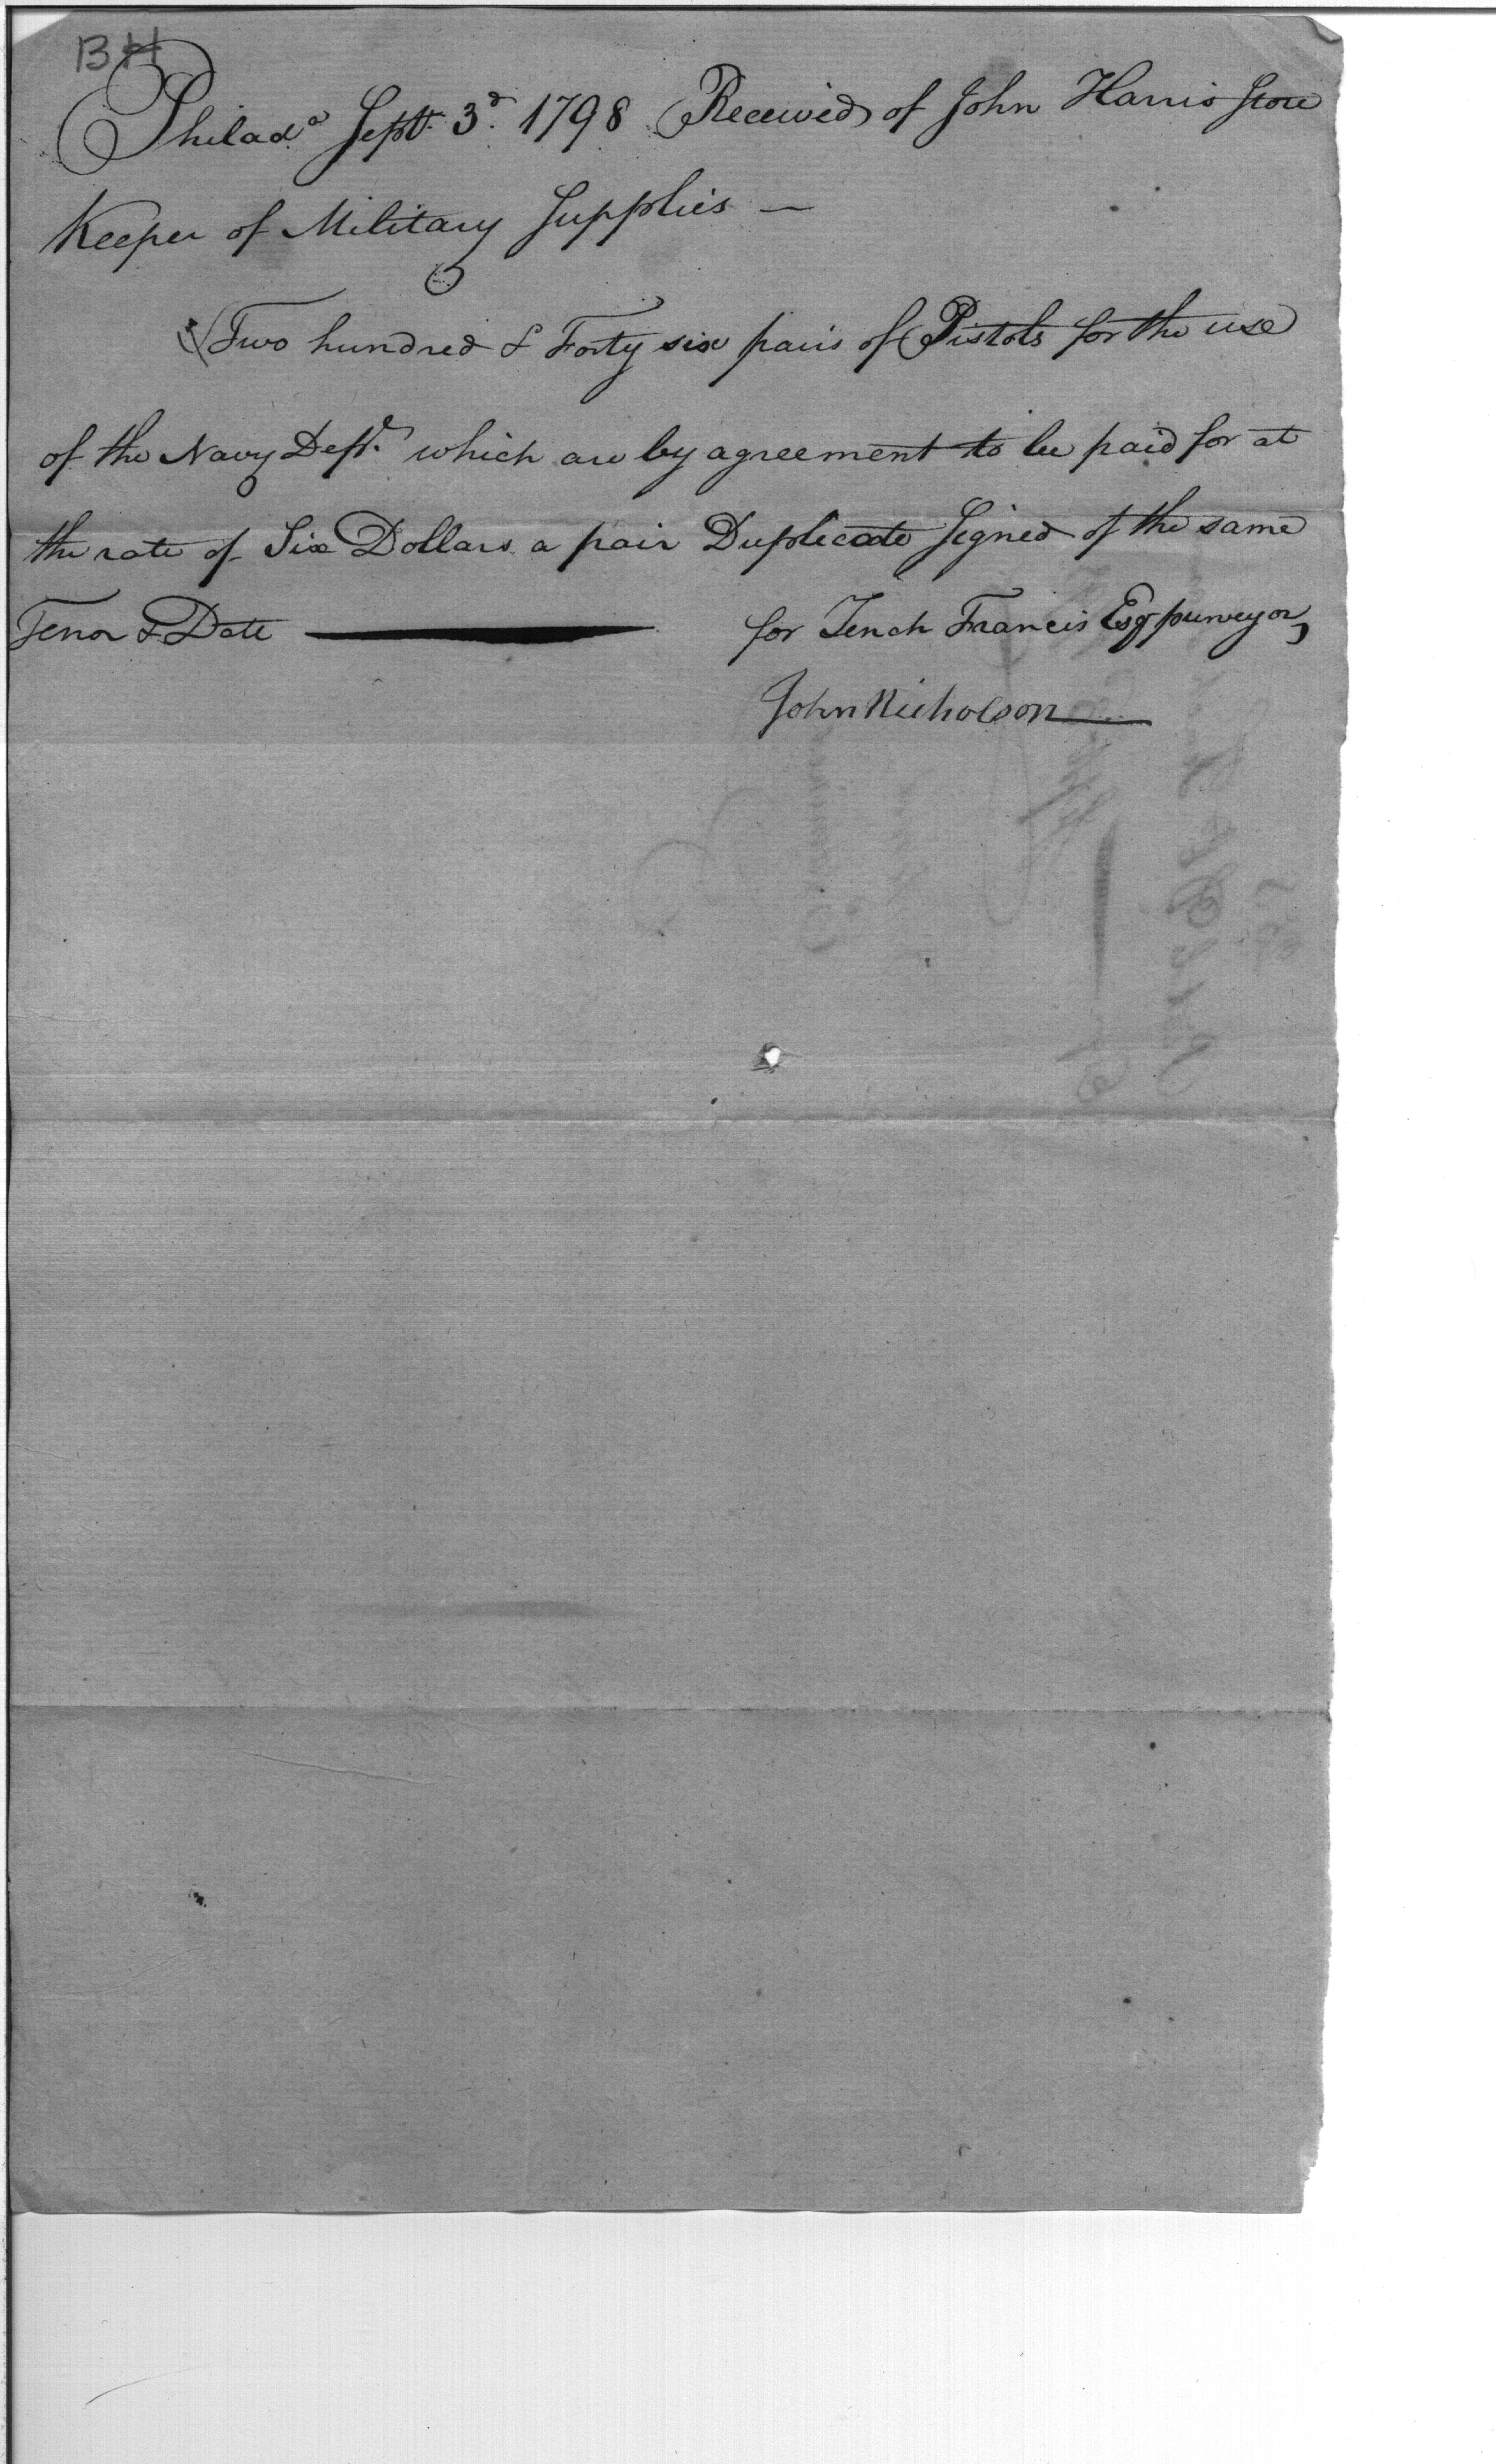 BH
Philada Sept. 3d. 1798 Received of John Harris Store
Keeper of Military Supplies —
Two hundred & Forty six pairs of Pistols for the use
of the Navy Dept. which are by agreement to be paid for at
the rate of Six Dollars a pair Duplicate Signed of the same
Tenor & Date —— for Tench Francis Esq purveyor,
John Nicholson